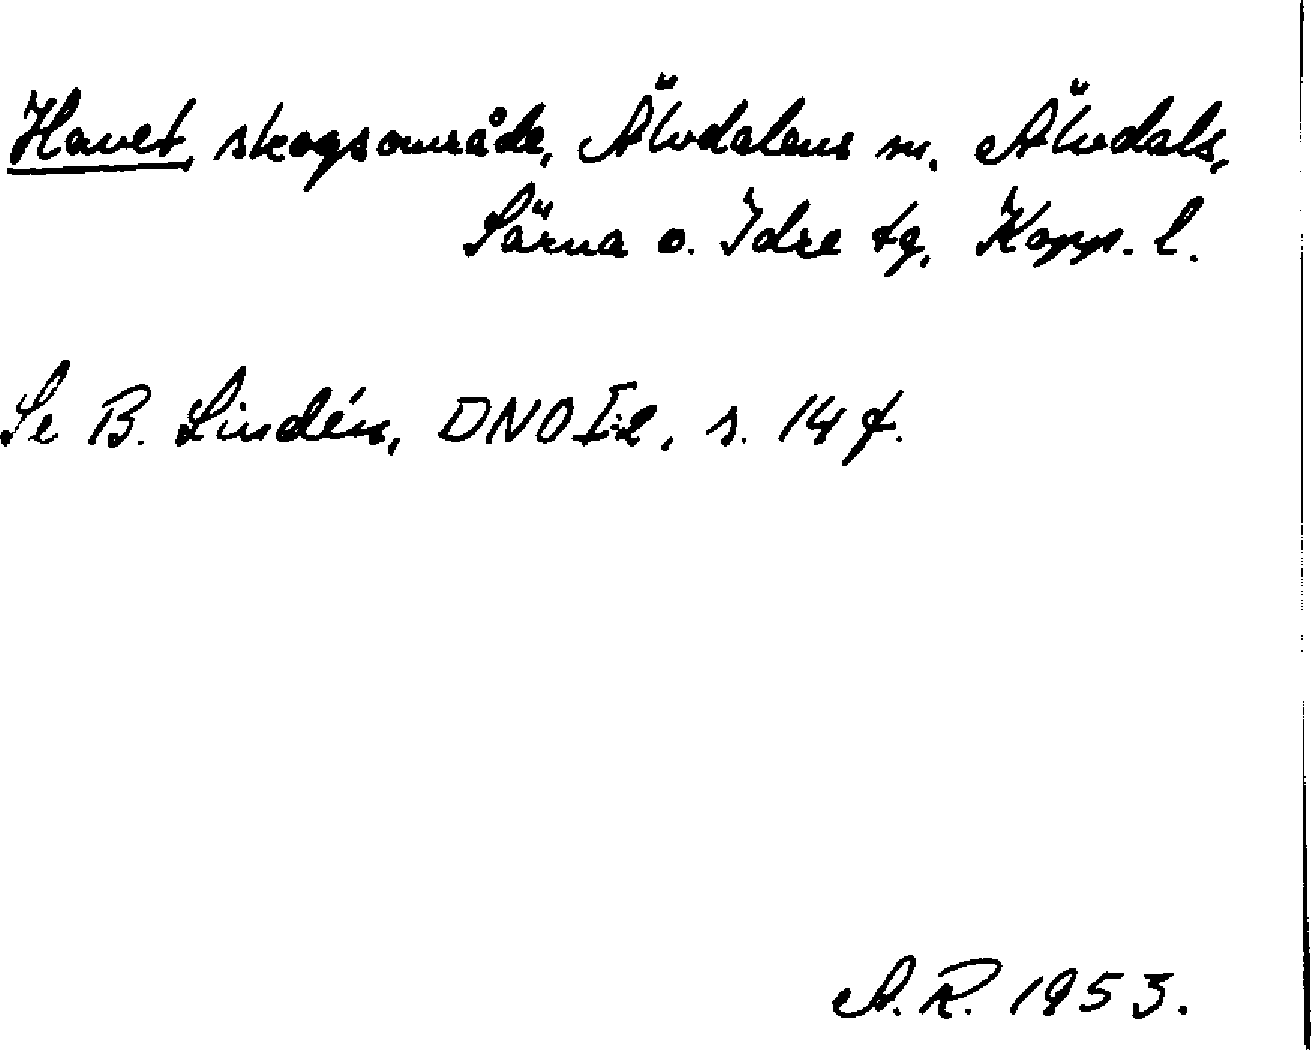 Havet, skogsområde, Älvdalens m. Älvdals,
Särna o. Idre tg, Kopp. l.
Se B. Lindén, DNO I:2, s. 14 f.
A. R. 1953.